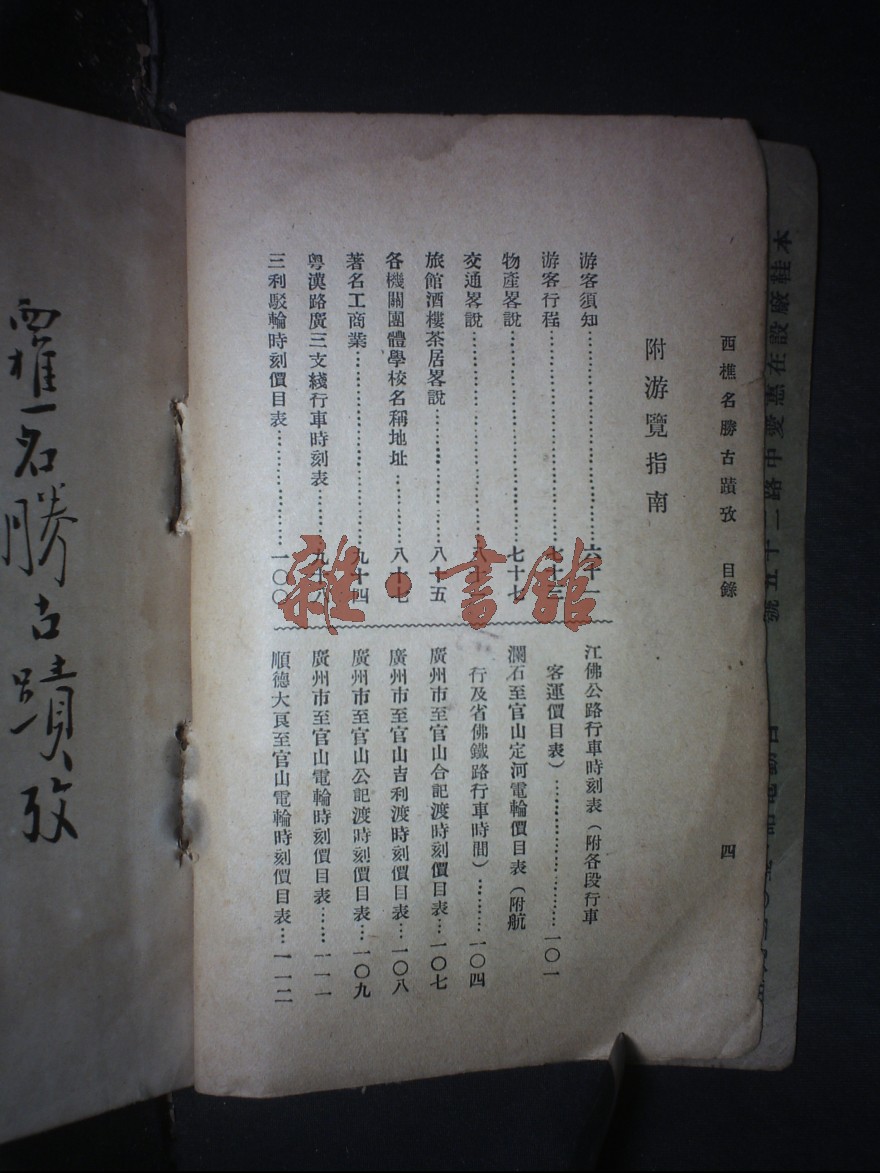 西樵名勝古蹟攷　目錄　四
附游覽指南
游客須知……六十一
游客行程……七十
物產畧說……七十七
交通畧說……八十
旅館酒樓茶居畧說……八十五
各機關團體學校名稱地址……八十七
著名工商業……九十四
粵漢路廣三支綫行車時刻表……九十八
三利駁輪時刻價目表……一〇〇
江佛公路行車時刻表（附各段行車
客運價目表）……一〇一
瀾石至官山定河電輪價目表（附航
行及省佛鐵路行車時間）……一〇四
廣州市至官山合記渡時刻價目表…一〇七
廣州市至官山吉利渡時刻價目表…一〇八
廣州市至官山公記渡時刻價目表…一〇九
廣州市至官山電輪時刻價目表……一一一
順德大良至官山電輪時刻價目表…一一二
雜·書館
名勝古蹟攷
本桂廠設在惠愛中路一十五號